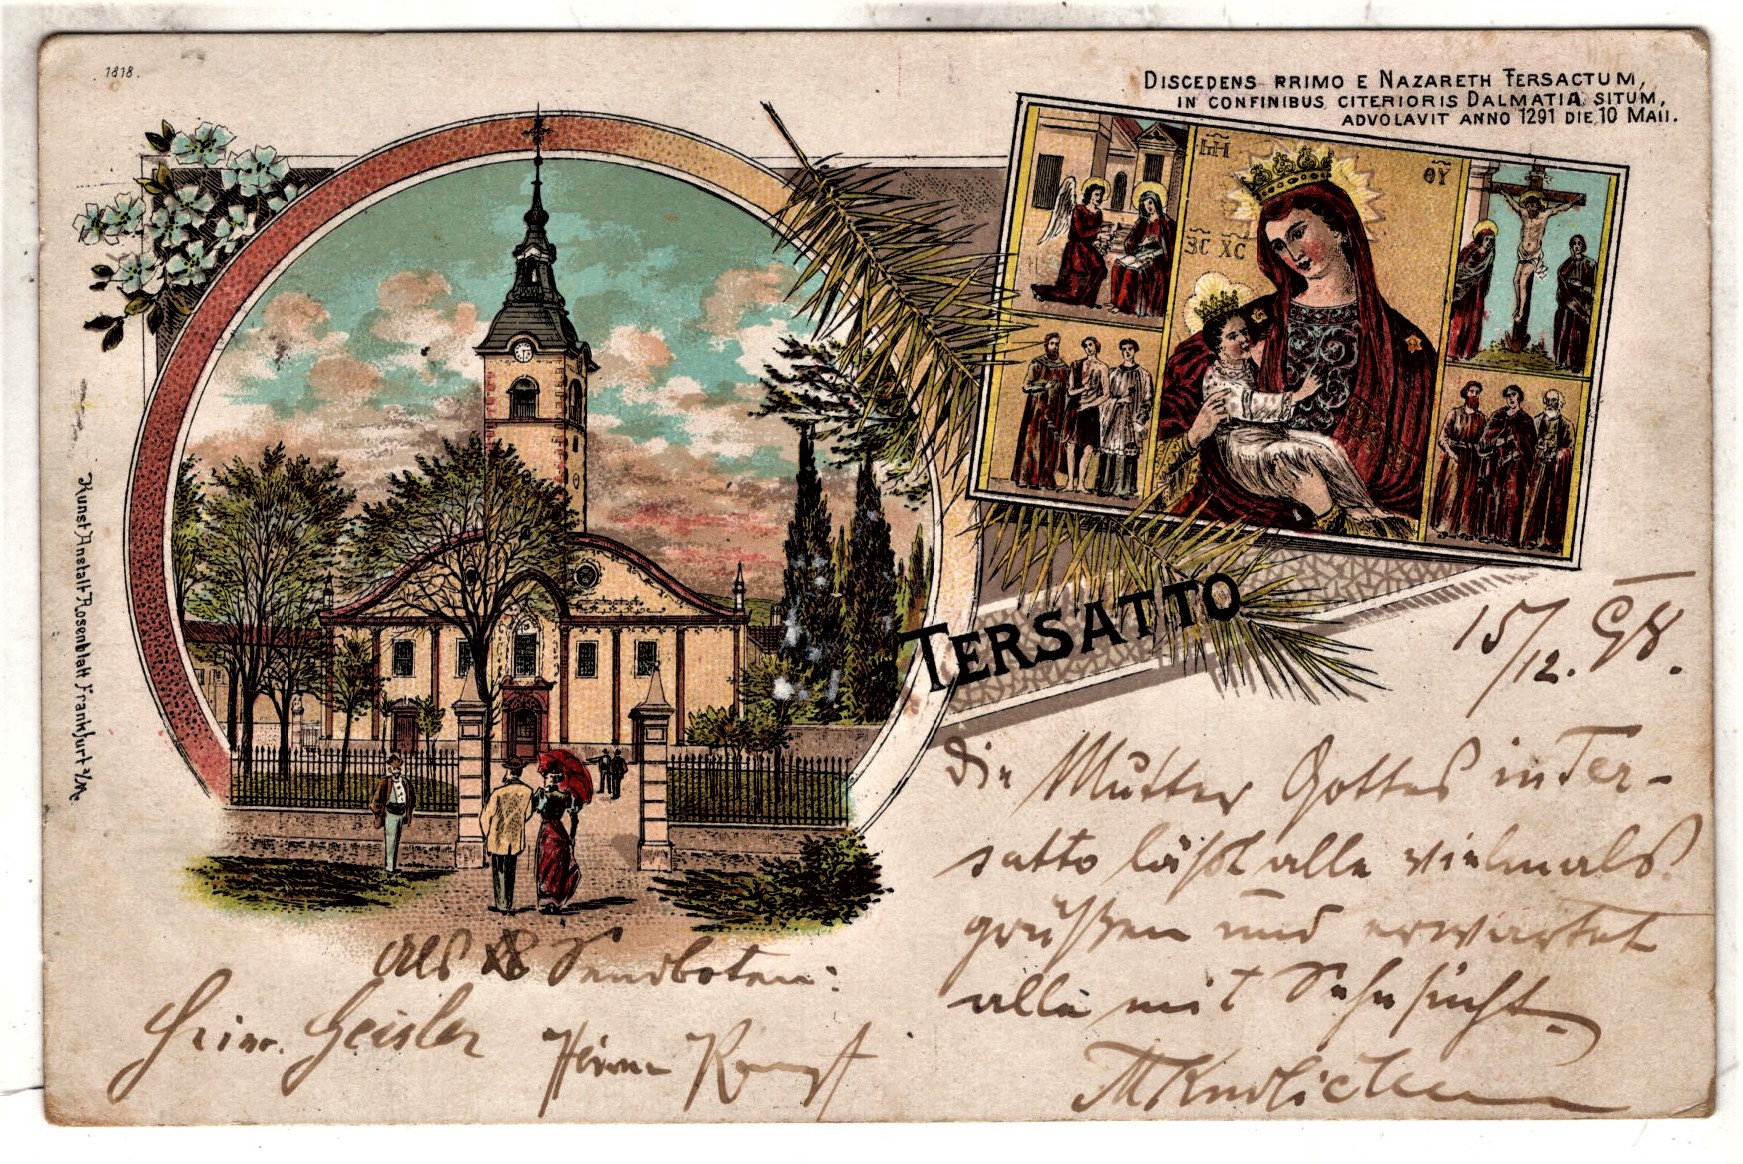 1818.
DISCEDENS PRIMO E NAZARETH TERSACTUM,
IN CONFINIBUS CITERIORIS DALMATIA SITUM,
ADVOLAVIT ANNO 1291 DIE 10 MAII.
ΘΥ
ΧC
TERSATTO
Kunst Anstalt Rosenblatt Frankfurt a/M.
15/12. 98.
Die Mutter Gottes in Ter-
satto läßt alle vielmals
grüßen und erwartet
alle mit Sehnsucht.
Als Sendboten:
Heinr. Geisler